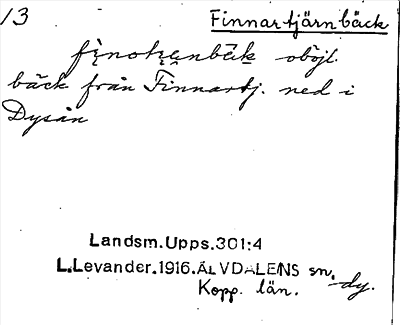 13 Finnartjärnbäck
oböjl.
bäck från Finnartj. ned i
Dysån
Landsm.Upps.301:4
L.Levander.1916.ÄLVDALENS sn.
Kopp. län. -dy.